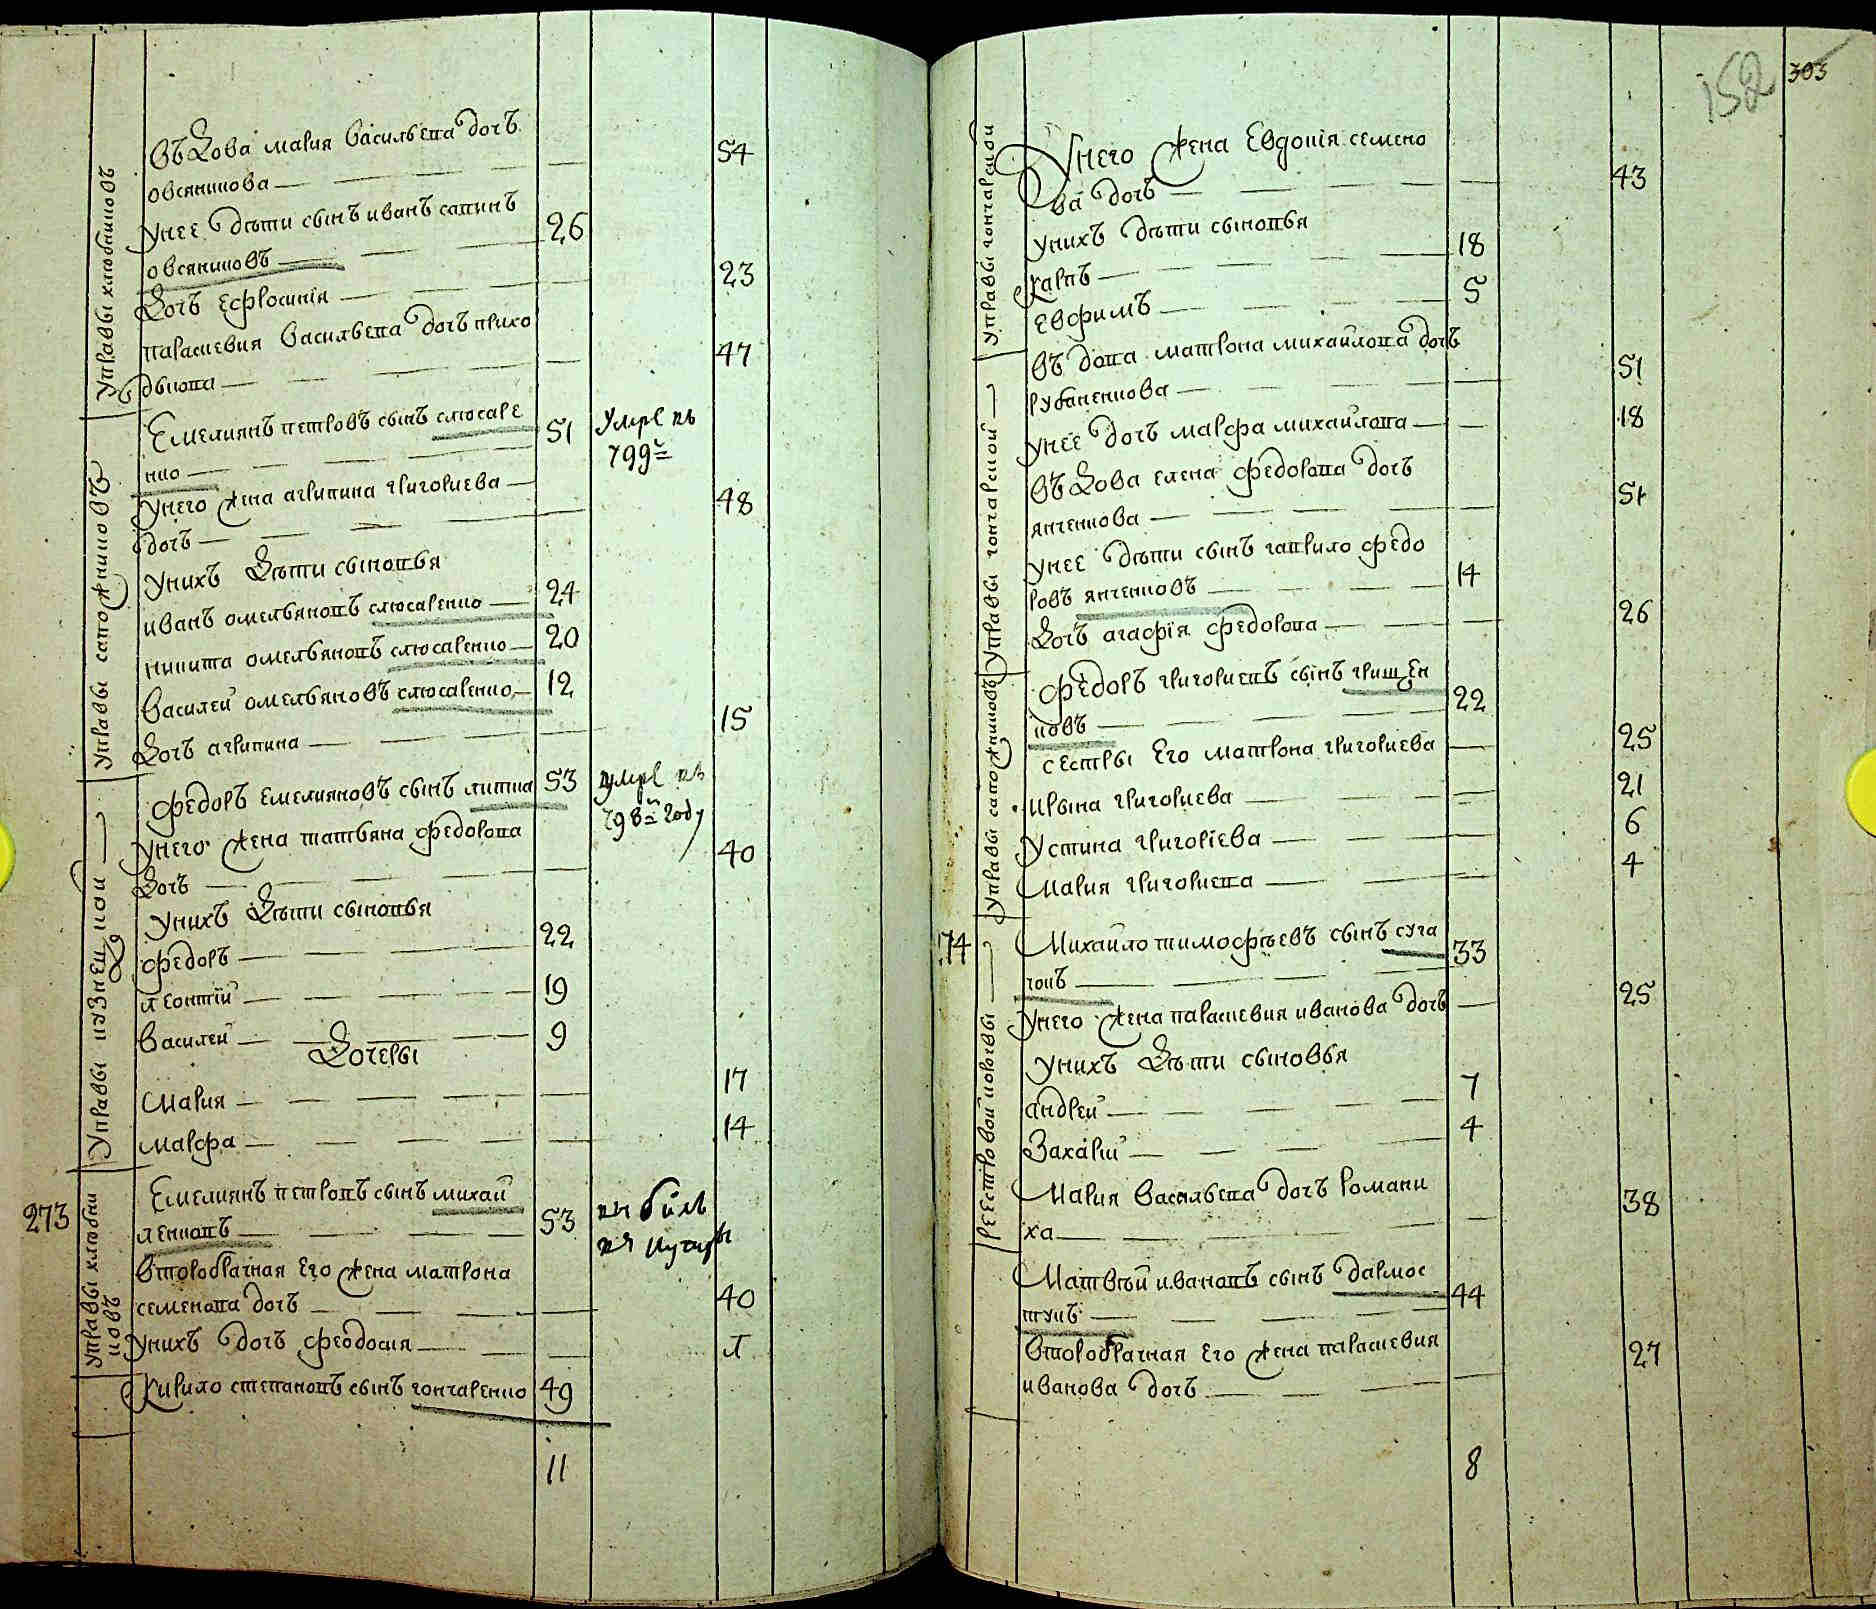 управы хлѣбниковъ
въдова мария васильева дочь
овсяникова 54
унее дѣти сынъ иванъ савинъ
овсяниковъ 26
дочь ефросинія 23
параскевия васильева дочь прихо
дькова 47
управы сапожниковъ
Емелиянъ петровъ сынъ слюсаре
нко 51 умре въ
799м
унего жена агрипина григориева
дочь 48
унихъ дѣти сыновья
иванъ омельяновъ слюсаренко 24
никита омельяновъ слюсаренко 20
василей омельяновъ слюсаренко 12
дочь агрипина 15
управы кузнецкой
федоръ емелияновъ сынъ липка 53 умре въ
798м году
унего жена татьяна федорова
дочь 40
унихъ дѣти сыновья
федоръ 22
леонтій 19
василей 9
дочеры
мария 17
марфа 14
273
управы хлѣбни
ковъ
Емелиянъ петровъ сынъ михай
ленковъ 53
второбрачная его жена матрона
семенова дочь 40
унихъ дочь феодосия
кирило степановъ сынъ гончаренко 49
11
152 303
управы гончарской
унего жена Евдокія семено
ва дочь 43
унихъ дѣти сыновья
карпъ 18
евфимъ 5
управы гончарской
въдова матрона михайлова дочь
рубаненкова 51
унее дочь марфа михайлова 18
въдова елена федорова дочь
янченкова 51
унее дѣти сынъ гаврило федо
ровъ янченковъ 14
дочь агафія федорова 26
управы сапожниковъ
федоръ григориевъ сынъ грищен
ковъ 22
сестры его матрона григориева 25
ирына григориева 21
устина григоріева 6
мария григориева 4
74
реестровой коровы
михайло тимофѣевъ сынъ суга
ковъ 33
унего жена параскевия иванова дочь 25
унихъ дѣти сыновья
андрей 7
захарій 4
мария васильева дочь романи
ха 38
матвѣй ивановъ сынъ дармос
тукъ 44
второбрачная его жена параскевия
иванова дочь 27
8